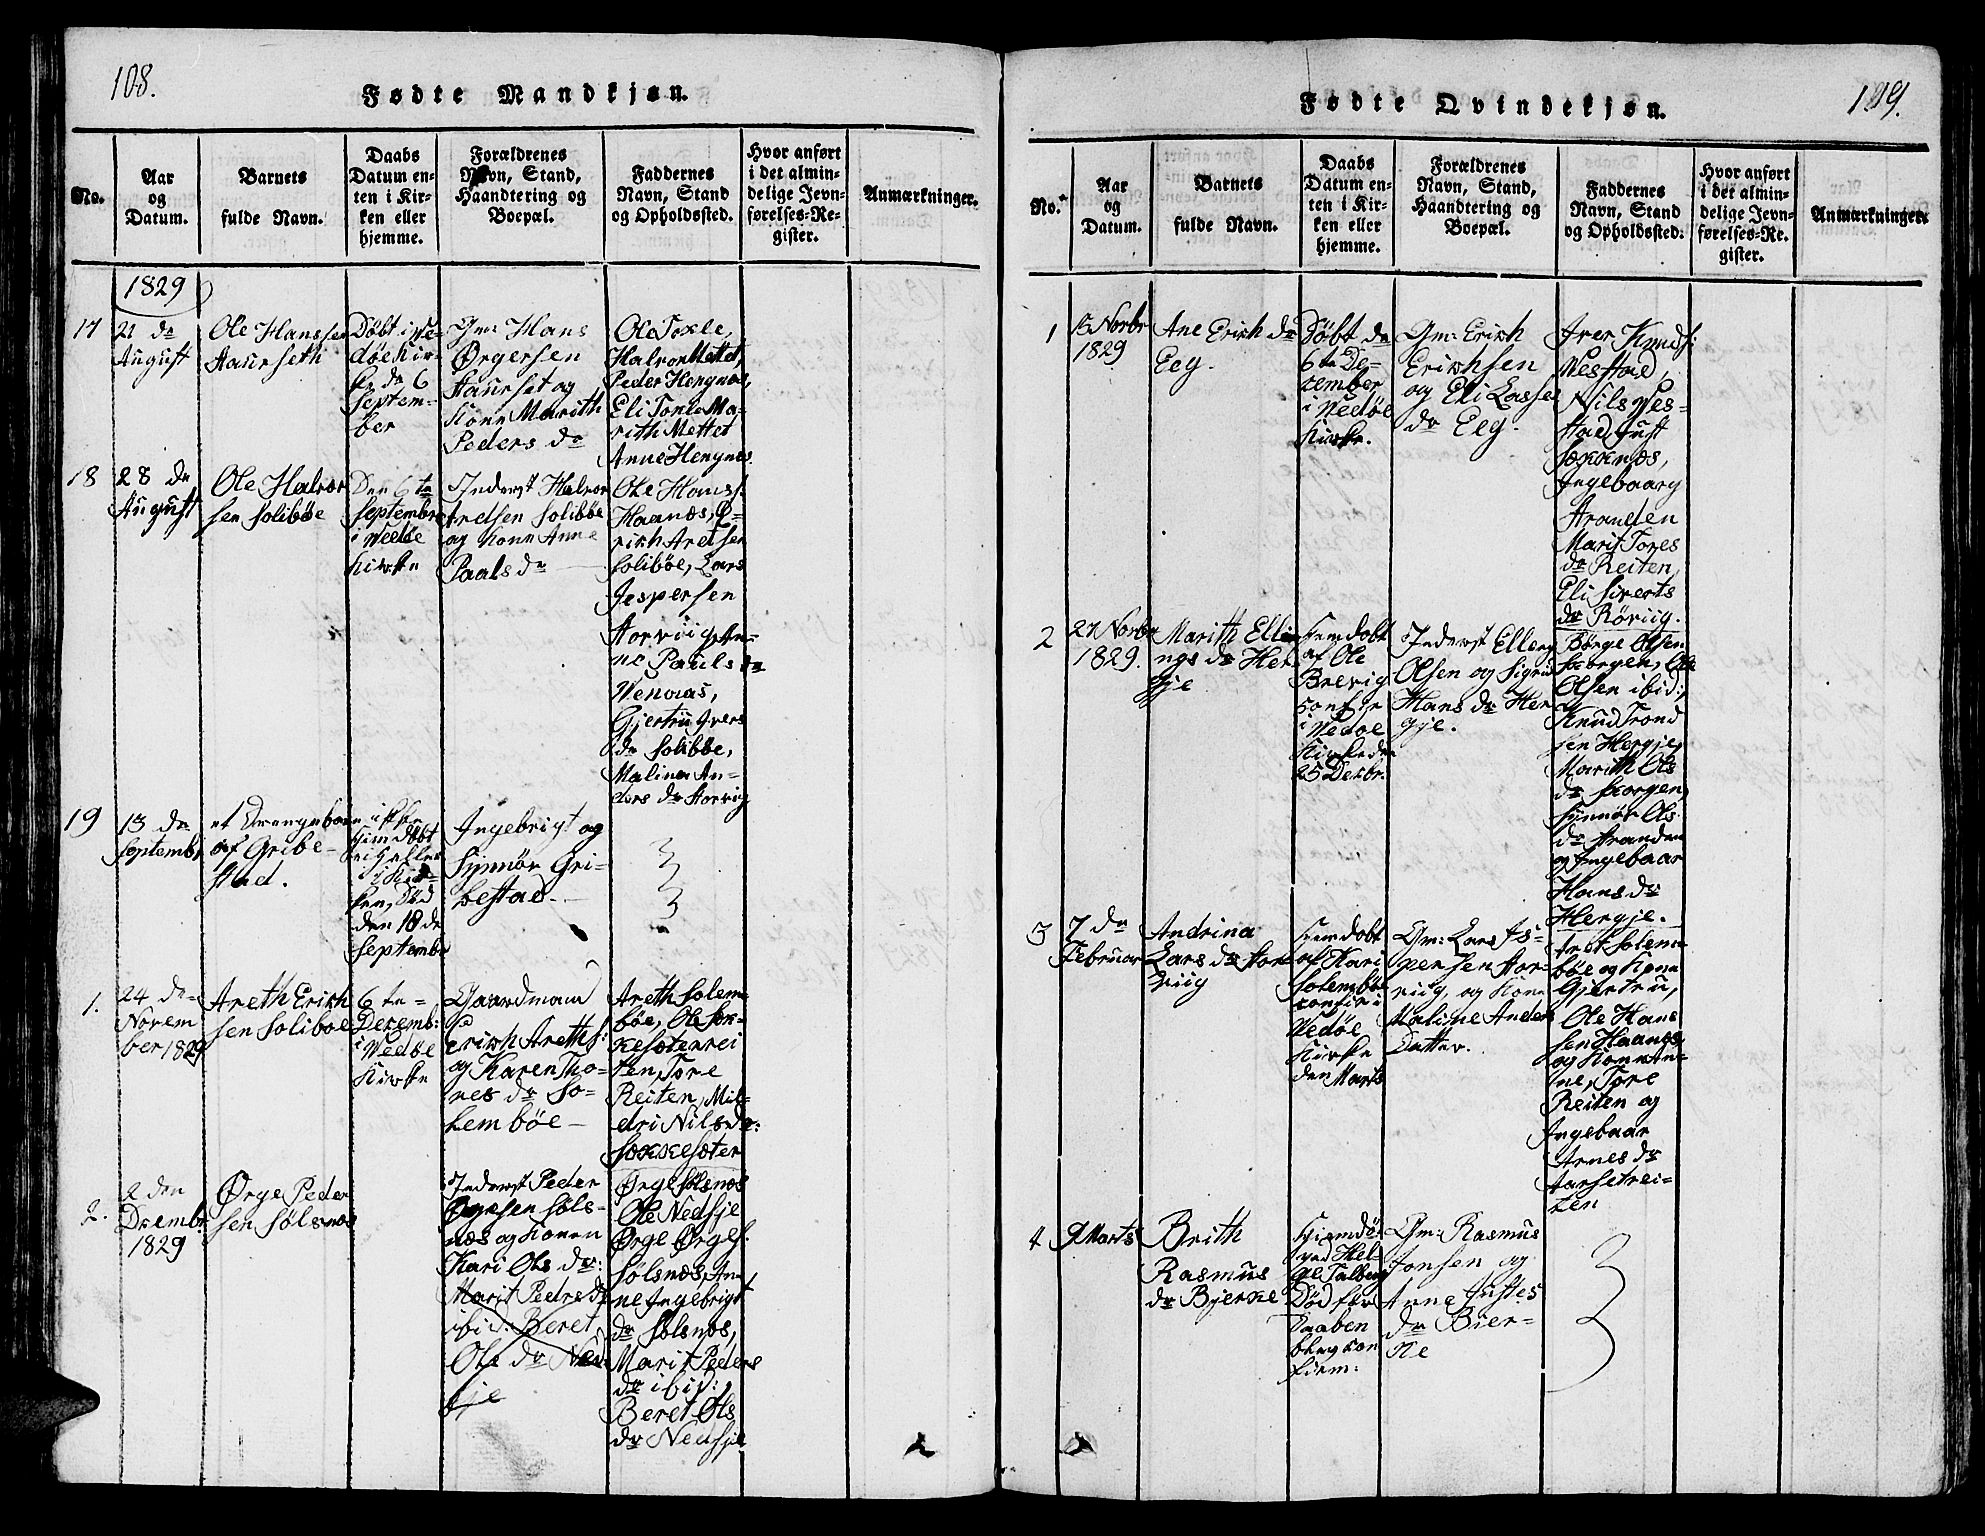 108.
Fødte Mandkjøn.
No.
Aar
og
Datum.
Barnets
fulde Navn.
Daabs
Datum en-
ten i Kir-
ken eller
hjemme.
Forældrenes
Navn, Stand,
Haandtering og
Boepæl.
Faddernes
Navn, Stand
og Opholdssted.
Hvor anført
i det almin-
delige Jevn-
førelses-Re-
gister.
Anmærkninger.
1829
17
21 de
August
Ole Hanssen
Haurseth
Døbt i Ve-
døe Kir-
ke de 6
Septem-
ber
Gm: Hans
Ørgersen
Haurset og
Kone Marith
Peders dr
Ole Toxle,
Halvor Mettet,
Peder Hengnæs,
Eli Toxle Ma-
rith Mettet
Anne Hengnæs.
18
28 de
August
Ole Halvor
sen Solibøe
Den 6te
Septembr
i Vedøe
Kirke
Inderst Halvor
Aretsen Solibøe
og Kone Anne
Paals dr
Ole Hans s:
Haanæs, E-
rikh Aretsen
Solibøe, Lars
Jespersen
Horviig, An-
ne Pauls dr
Venaas,
Gjertru Ivers
dr Solibøe,
Malina An-
ders dr Horvig
19
13 de
Septembr
et Drengebarn
af Gribe-
stad.
hjemdøbt
eller
i Kir-
ken, Død
den 18 de
Septembr
Ingebrigt og
Synnør Gri-
bestad.
1.
24 de
Novem
ber 1829
Areth Erikh
sen Soliboe
6 te
Decemb:
i Vedøe
Kirke
Gaardmand
Erikh Areths:
og Karen Tho-
nes dr So-
lembøe
Areth Solem-
bøe, Ole Sok-
kesæterrei
ten, Tore
Reiten, Mil-
dri Nils dr:
Sokkesæter
2.
2 den
Decembr
1829
Ørge Peder
sen Sølsnæs
Inderst Peder
Ørgesen Søls-
næs og Konen
Kari Ols dr:
Marit Peders dr
ibid: Beret
Ole dr Ned-
sje
Ørge Sølsnæs
Ole Nedsje
Ørge Ørges.
Sølsnæs, An-
ne Ingebrigt
dr Sølsnæs,
Marit Peders
dr ibid:,
Beret Ols
dr Nedsje
109.
Fødte Qvindekjøn.
No.
Aar
og
Datum.
Barnets
fulde Navn.
Daabs
Datum en-
ten i Kir-
ken eller
hjemme.
Forældrenes
Navn, Stand,
Haandtering og
Boepæl.
Faddernes
Navn, Stand
og Opholdssted.
Hvor anført
i det almin-
delige Jevn-
førelses-Re-
gister.
Anmærkninger.
1
Novbr
1829
Ane Erikh dr
Eeg.
Døbt de
6te De-
cember
i Vedøe
Kirke.
Gm: Erikh
Erikhsen
og Eli Lasse
dr Eeg.
Iver Knuds:
Nestad,
Nils Nes-
stad, Just
Ingebaarg
Stranden
Marit Tores
dr Reiten,
Eli Siverts
dr Røviig.
2
27 Novbr
1829.
Marith Ellin
ngs dr Her
gje
Hjemdøbt
af Ole
Brevig
Conf ir
i Vedøe
Kirke den
25 Decbr.
Inderst Elleng
Olsen og Sigrid
Hans dr Her
gje.
Børge Olsen
Skorgen, Ole
Olsen ibid:,
Knud Trond
sen Hergje,
Marith Ols
dr Skorgen,
Synnør Ols
dr Stranden
og Ingebaar
Hans dr
Hergje.
3
7 de
Februar
Andrina
Lars dr Hor
viig
Hjemdøbt
af Kari
Solembøe
confir i
Vedøe
Kirke
den Marts
Gm: Lars Js-
persen Hor-
viig, og Kone
Maline Anders
Datter.
Aret Solem-
bøe og Kone
Gjertru,
Ole Hans
sen Haanæs
og Kone An-
ne, Tore
Reiten og
Ingebaar
Arnes dr
Harsetrei-
ten
4
9 Marts
Brith
Rasmus
dr Bjerke
Hjemdøbt
ved Hel-
ge Talberg
Død før
Daaben
blev con
firm:
Gm: Rasmus
Jonsen og
Anne Justes
dr Bier-
ke